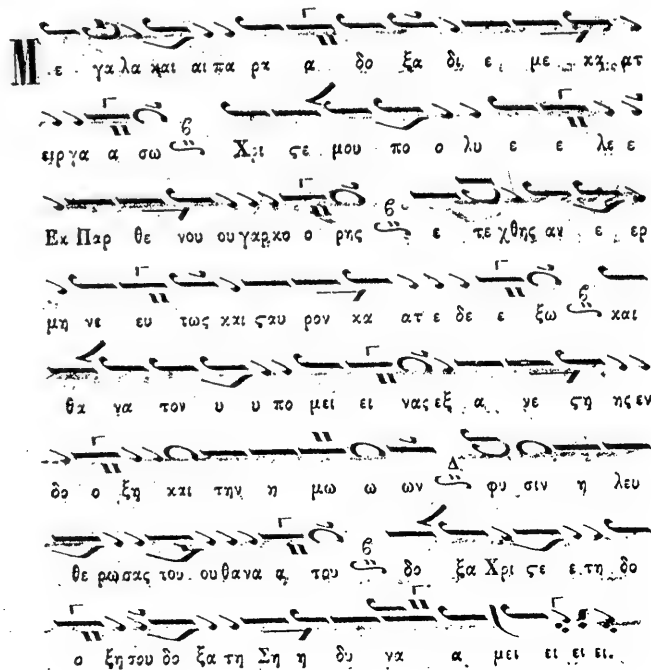 Μ ε γα λα και αι πα ρα α δο ξα δι ε με κα ατ
ειρ γα α σω Χρι ϛε μου πο ο λυ ε ε λε ε
Εκ Παρ θε νου ου γαρ κο ο ρης ε τε χθης αν ε ερ
μη νε ευ τως και ϛαυ ρον κα ατ ε δε ε ξω και
θα να τον υ υ πο μει ει νας εξ α νε ϛη ης εν
δο ο ξη και την η μω ω ων Δ φυ σιν η λευ
θε ρω σας του ου θα να α του δο ξα Χρι ϛε ε τη δο
ο ξη του δο ξα τη Ση η δυ να α μει ει ει ει.